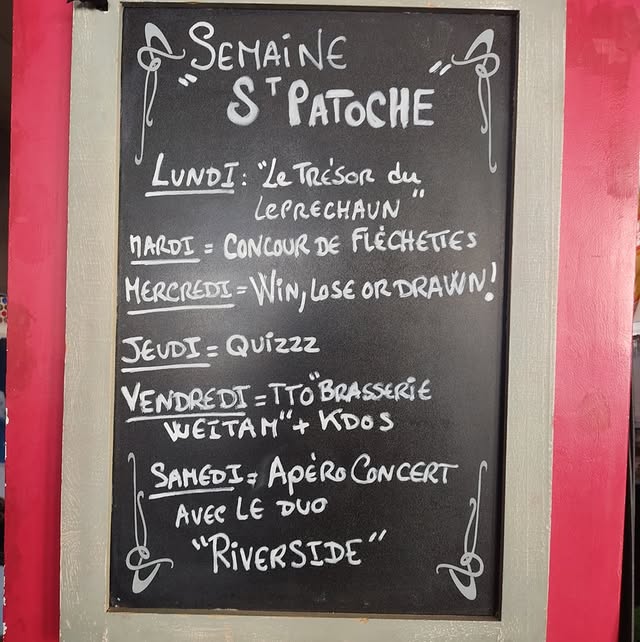 "SEMAINE
ST PATOCHE"
LUNDI: "Le TRÉSOR du
LEPRECHAUN"
MARDI = CONCOUR DE FLÉCHETTES
MERCREDI = WIN, LOSE OR DRAWN!
JEUDI = QUIZZZ
VENDREDI = TTO "BRASSERIE
WEITAM" + KDOS
SAMEDI = APÉRO CONCERT
AVEC LE DUO
"RIVERSIDE"